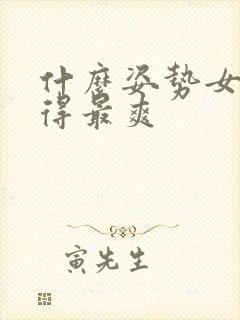 什麼姿势女
得最爽
寅先生